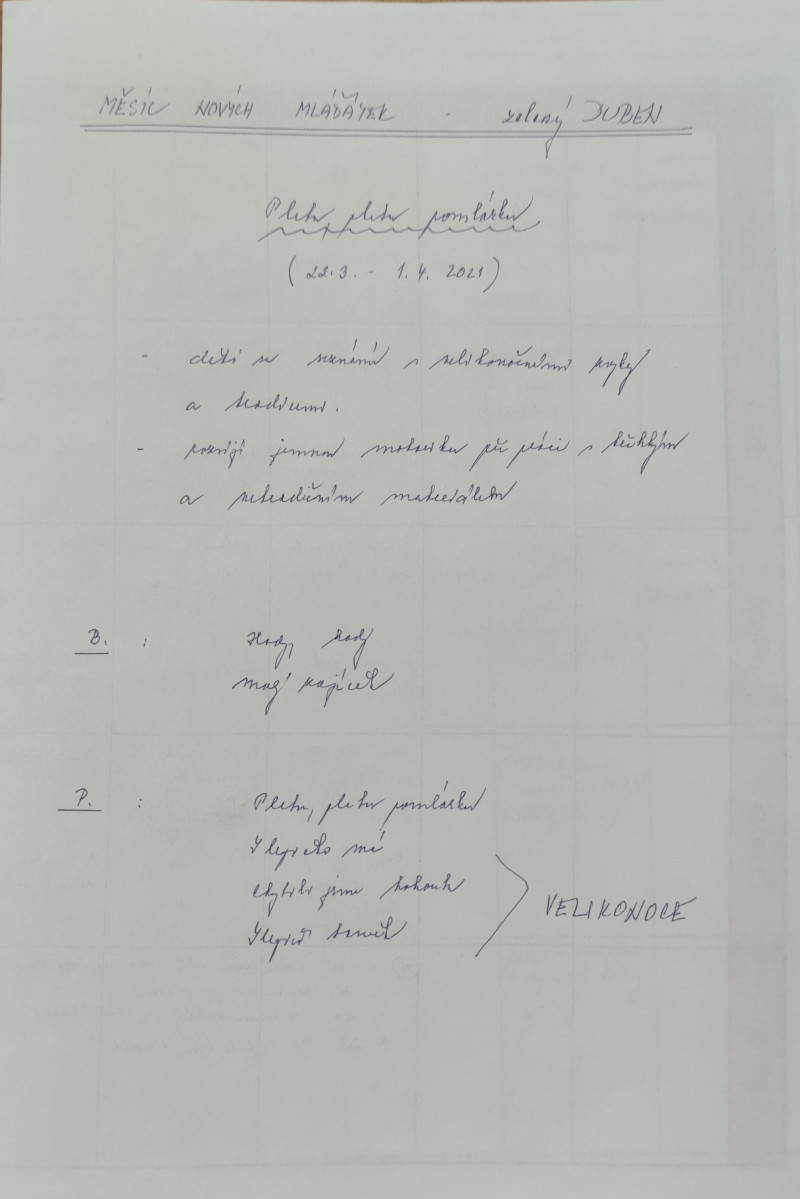 MĚSÍC NOVÝCH MLÁĎÁTEK - zelený DUBEN
Pletu, pletu pomlázku
(22.3. - 1.4. 2021)
- děti se seznámí s velikonočními zvyky
a tradicemi.
- rozvíjí jemnou motoriku při práci s
a netradičním materiálem
B. : Hody, hody
malý zajíček
P. : Pletu, pletu pomlázku
Slepičko má
chytili jsme kohouta
Slepičí
VELIKONOCE